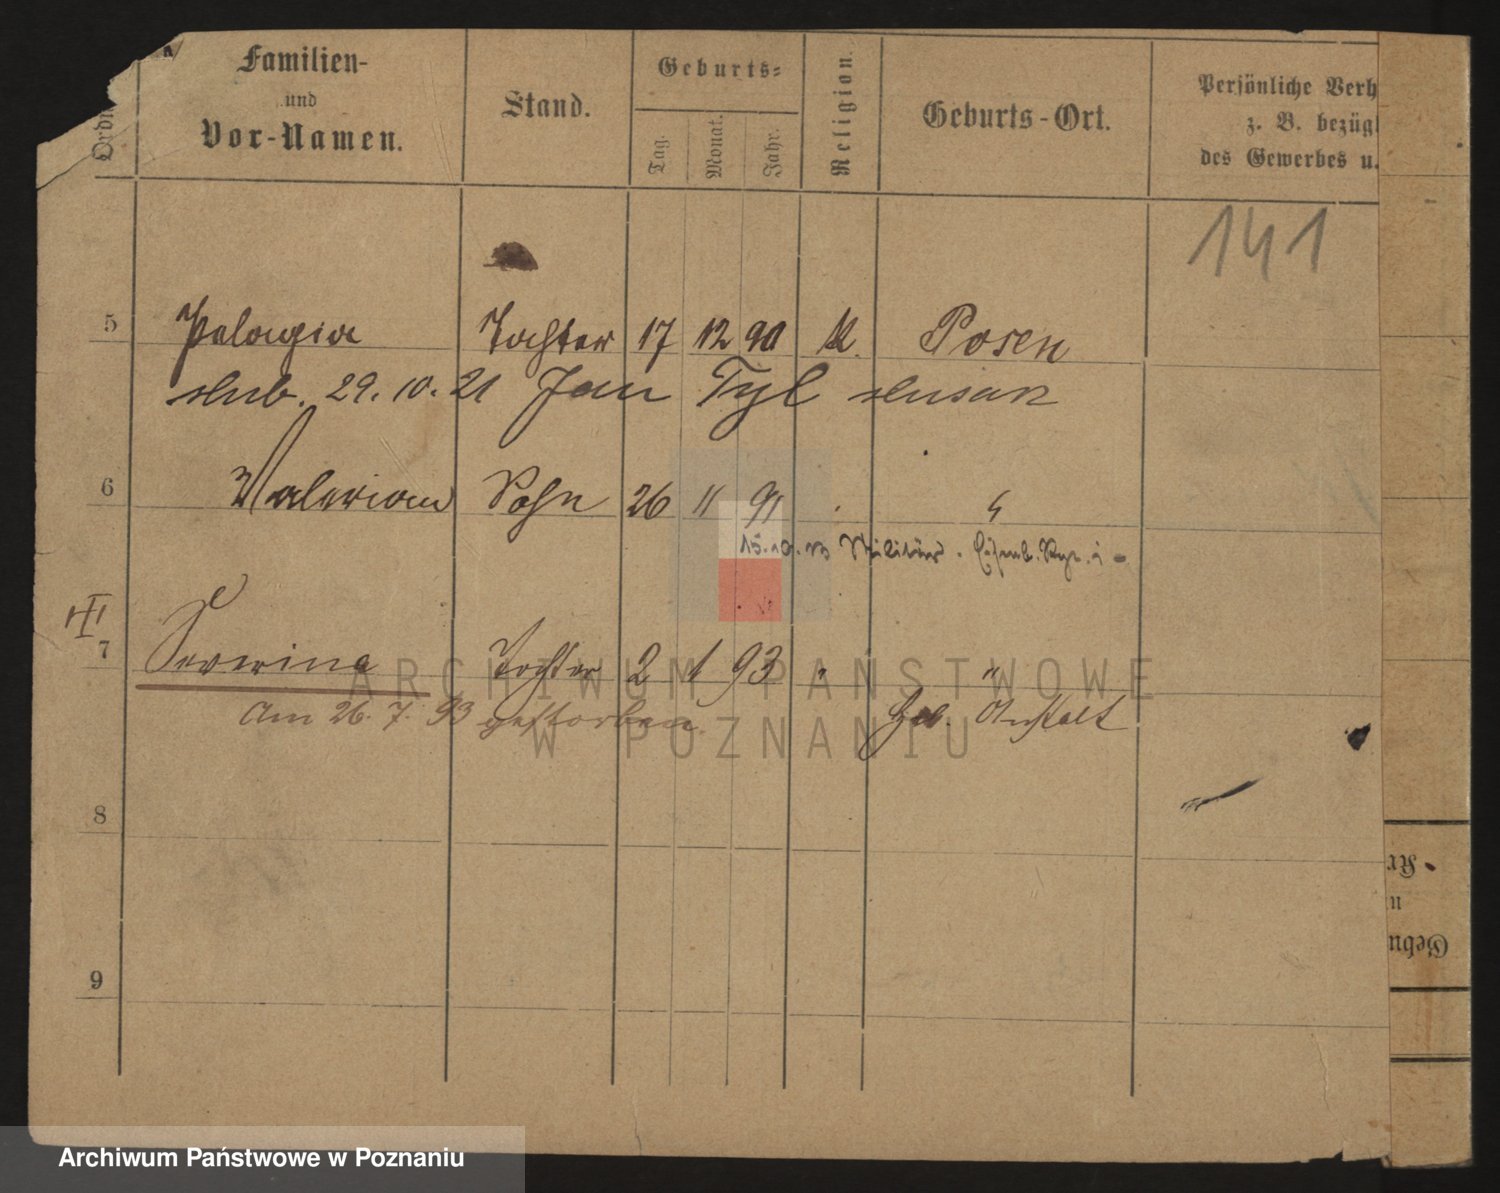 Familien-
und
Vor-Namen.
Stand.
Geburts-
Tag. Monat. Jahr.
Religion.
Geburts-Ort.
Persönliche Verh
z. B. bezügl
des Gewerbes u.
Ordn
141
5 Pelagia Tochter 17 12 90 K. Posen
ślub. 29. 10. 21 Jan Tyl ślusarz
6 Valerian Sohn 26 11 91 "
15.10.13 Militär. Eisenb. Rgt. 1
7 Severina Tochter 2 1 93 " "
Am 26. 7. 93 gestorben. Geb. Anstalt
8
9
Kr
u
Gebu
ARCHIWUM PAŃSTWOWE
W POZNANIU
Archiwum Państwowe w Poznaniu